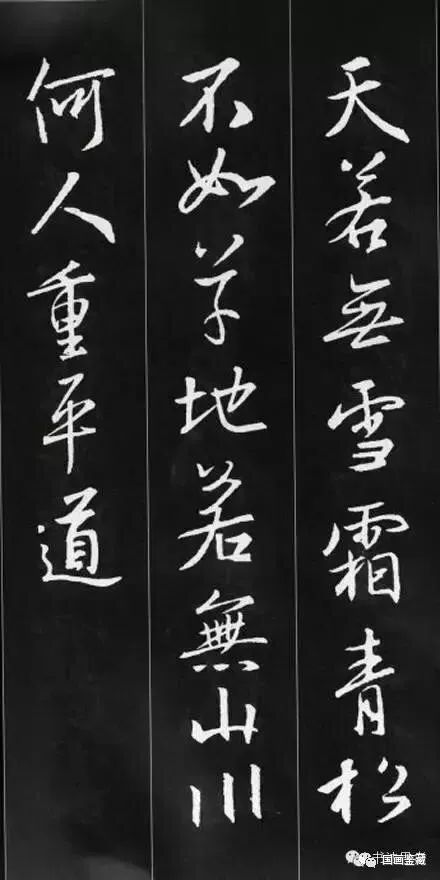 天若無雪霜青松
不如草地若無山川
何人重平道
国画鉴藏